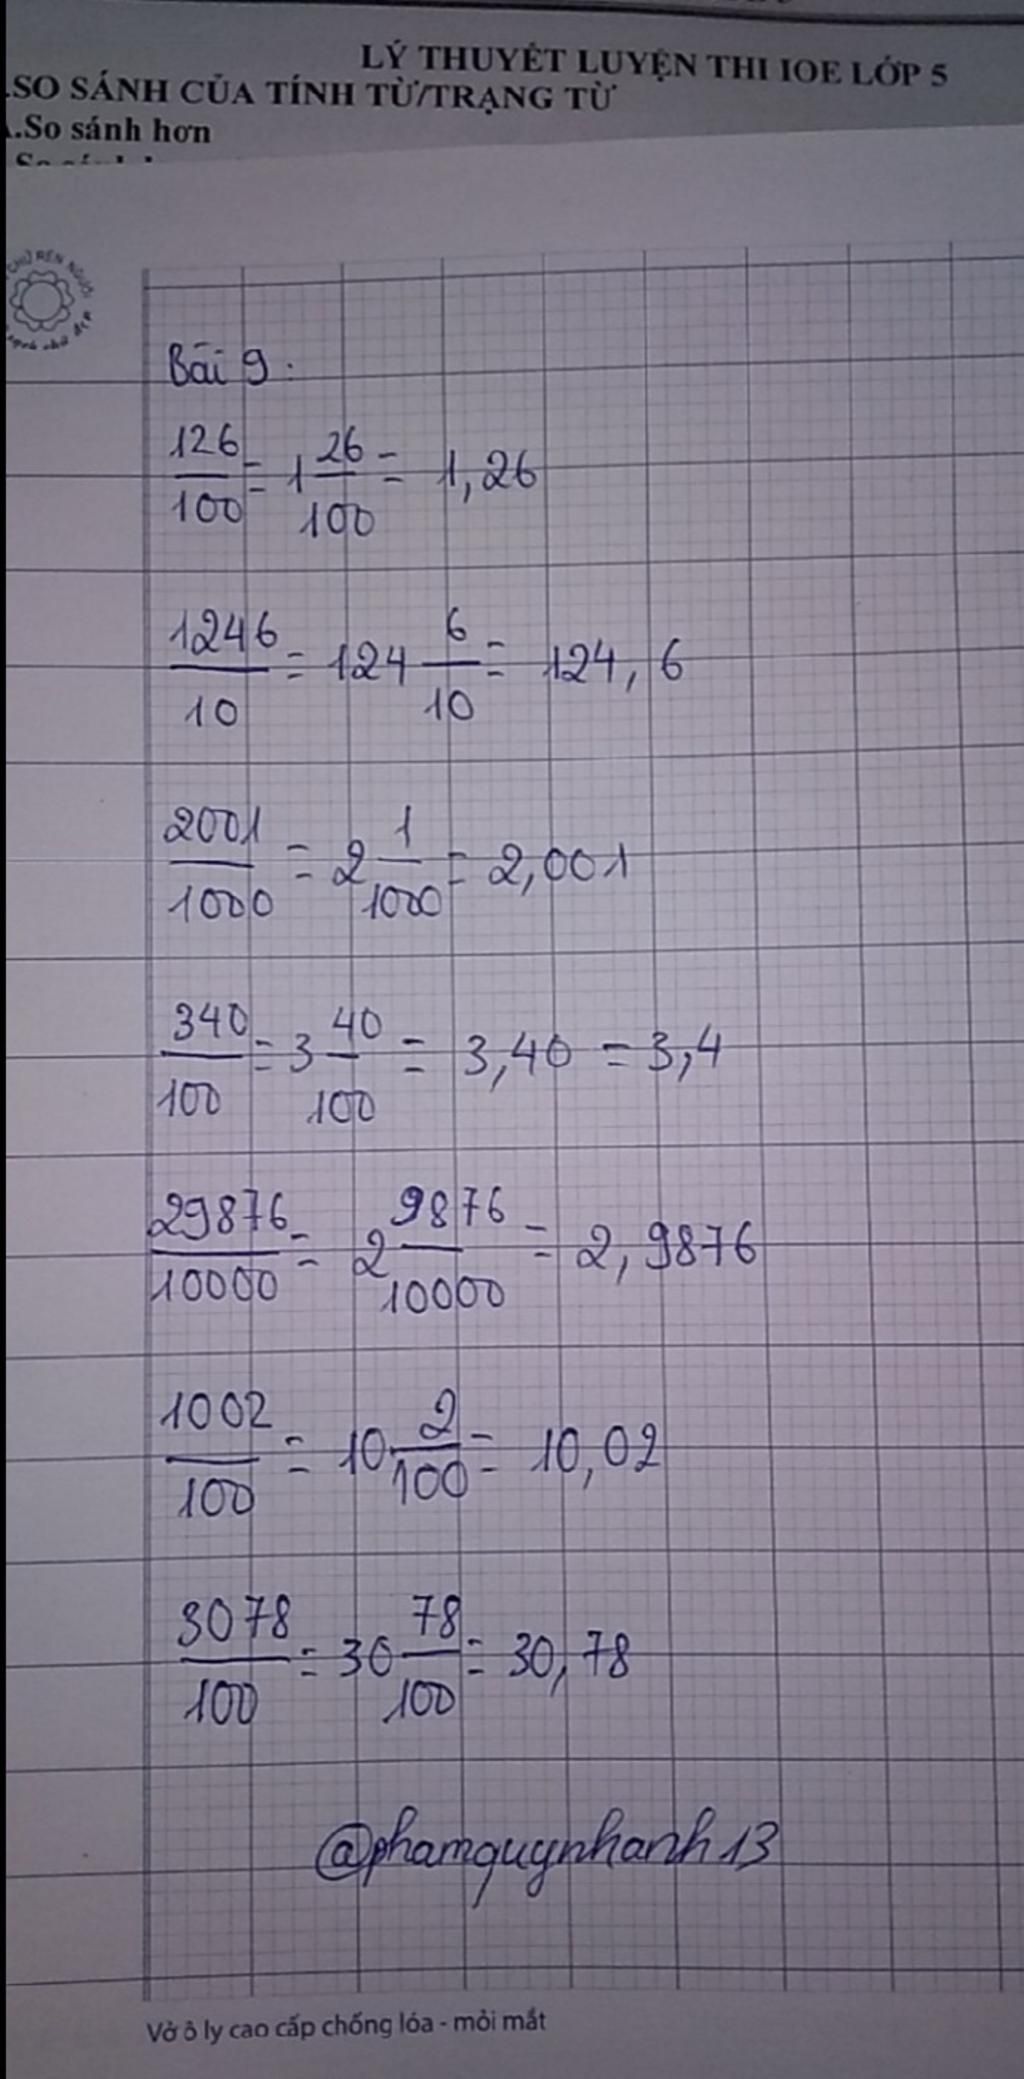 LÝ THUYẾT LUYỆN THI IOE LỚP 5
.SO SÁNH CỦA TÍNH TỪ/TRẠNG TỪ
.So sánh hơn
CHỮ RÈN NGƯỜI
Bài 9:
126/100 = 1 26/100 = 1,26
1246/10 = 124 6/10 = 124,6
2001/1000 = 2 1/1000 = 2,001
340/100 = 3 40/100 = 3,40 = 3,4
29876/10000 = 2 9876/10000 = 2,9876
1002/100 = 10 2/100 = 10,02
3078/100 = 30 78/100 = 30,78
@phamquynhanh13
Vở ô ly cao cấp chống lóa - mỏi mắt